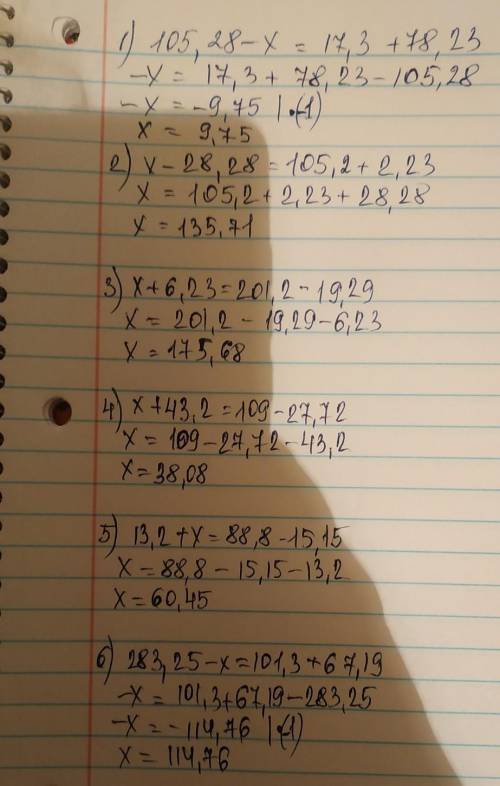 1) 105,28-x = 17,3 +78,23
-x = 17,3+ 78,23-105,28
-x = -9,75 | ·(-1)
x = 9,75
2) x - 28,28 = 105,2 + 2,23
x = 105,2+2,23+28,28
x = 135,71
3) x+6,23=201,2-19,29
x = 201,2 - 19,29-6,23
x = 175,68
4) x+43,2=109-27,72
x = 109-27,72-43,2
x=38,08
5) 13,2+x=88,8-15,15
x=88,8-15,15-13,2
x=60,45
6) 283,25-x=101,3+67,19
-x = 101,3+67,19-283,25
-x = -114,76 |·(-1)
x = 114,76